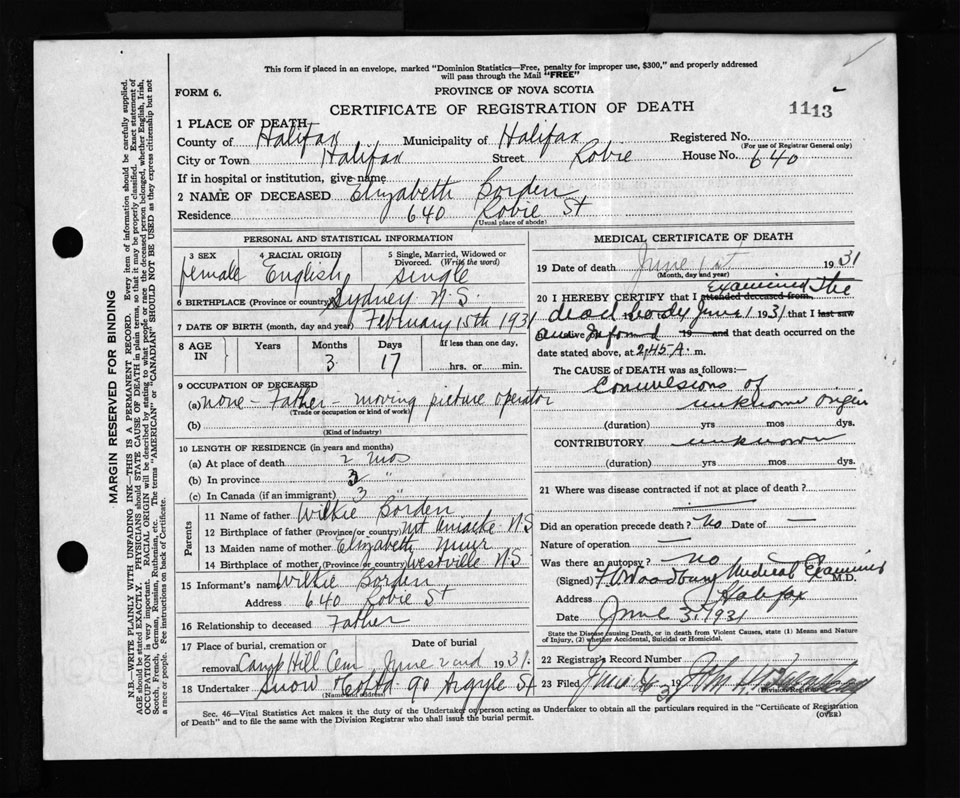 This form if placed in an envelope, marked "Dominion Statistics—Free, penalty for improper use, $300," and properly addressed
will pass through the Mail "FREE"
FORM 6.
PROVINCE OF NOVA SCOTIA
CERTIFICATE OF REGISTRATION OF DEATH
1113
1 PLACE OF DEATH
County of Halifax Municipality of Halifax Registered No.
(For use of Registrar General only)
City or Town Halifax Street Robie House No. 640
If in hospital or institution, give name
2 NAME OF DECEASED Elizabeth Borden
Residence 640 Robie St
(Usual place of abode)
PERSONAL AND STATISTICAL INFORMATION
3 SEX 4 RACIAL ORIGIN 5 Single, Married, Widowed or
Divorced. (Write the word)
female English single
6 BIRTHPLACE (Province or country) Sydney N.S.
7 DATE OF BIRTH (month, day and year) February 15th 1931
8 AGE IN Years Months Days If less than one day,
3 17 hrs. or min.
9 OCCUPATION OF DECEASED
(a) none - Father - moving picture operator
(Trade or occupation or kind of work)
(b)
(Kind of industry)
10 LENGTH OF RESIDENCE (in years and months)
(a) At place of death 2 mos
(b) In province 3 "
(c) In Canada (if an immigrant) 3 "
Parents
11 Name of father Wilkie Borden
12 Birthplace of father (Province or country) Mt Uniacke N.S
13 Maiden name of mother Elizabeth Muir
14 Birthplace of mother (Province or country) Westville N S
15 Informant's name Wilkie Borden
Address 640 Robie St
16 Relationship to deceased Father
17 Place of burial, cremation or Date of burial
removal Camp Hill Cem June 2nd 1931.
18 Undertaker Snow & Co Ltd 90 Argyle St
(Name and address)
MEDICAL CERTIFICATE OF DEATH
19 Date of death June 1st 1931
(Month, day and year)
20 I HEREBY CERTIFY that I attended deceased from examined The
dead body June 1 1931 that I last saw
alive 19 and that death occurred on the
date stated above, at 2.45 A. m.
The CAUSE of DEATH was as follows:—
Convulsions of
unknown origin
(duration) yrs mos dys.
CONTRIBUTORY unknown
(duration) yrs mos dys.
21 Where was disease contracted if not at place of death? —
Did an operation precede death? No Date of —
Nature of operation —
Was there an autopsy? no
(Signed) Woodbury Medical Examiner M.D.
Address Halifax
Date June 3, 1931
State the Disease causing Death, or in death from Violent Causes, state (1) Means and Nature
of Injury, (2) whether Accidental, Suicidal or Homicidal.
22 Registrar's Record Number
23 Filed June 193 John
(Division Registrar)
Sec. 46—Vital Statistics Act makes it the duty of the Undertaker or person acting as Undertaker to obtain all the particulars required in the "Certificate of Registration
of Death" and to file the same with the Division Registrar who shall issue the burial permit.
(OVER)
MARGIN RESERVED FOR BINDING
N.B.—WRITE PLAINLY, WITH UNFADING INK—THIS IS A PERMANENT RECORD. Every item of information should be carefully supplied.
AGE should be stated EXACTLY. PHYSICIANS should STATE CAUSE OF DEATH in plain terms, so that it may be properly classified. Exact statement of
OCCUPATION is very important. RACIAL ORIGIN will be described by stating to what people or race the deceased person belonged, whether English, Irish,
Scotch, French, German, Russian, Ruthenian, etc. The terms "AMERICAN" or "CANADIAN" SHOULD NOT BE USED as they express citizenship but not
a race or people. See instructions on back of Certificate.